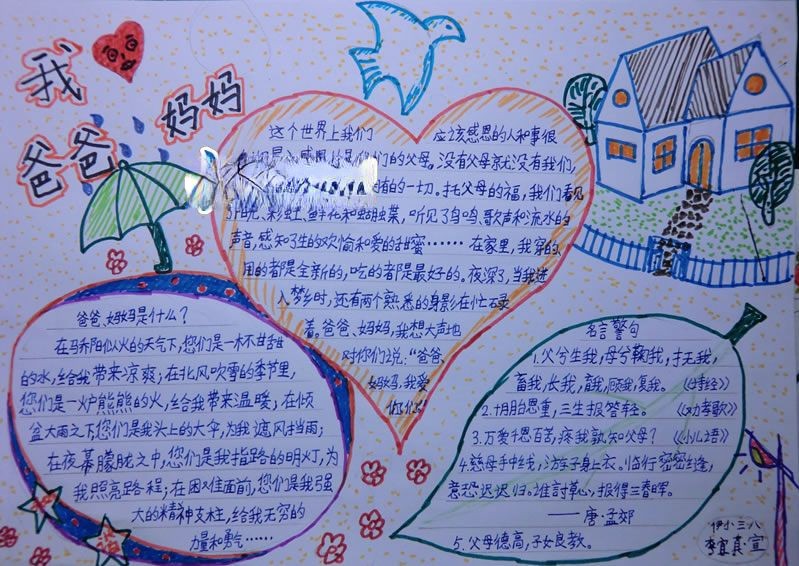 我
爸爸
妈妈
这个世界上我们
应该感恩的人和事很
们的父母。没有父母就没有我们,
的一切。托父母的福,我们看见
阳光、彩虹、鲜花和蝴蝶,听见了鸟鸣、歌声和流水的
声音,感知了生的欢愉和爱的甜蜜……在家里,我穿的
用的都是全新的,吃的都是最好的。夜深了,当我进
入梦乡时,还有两个熟悉的身影在忙碌
着。爸爸、妈妈,我想大声地
对你们说:“爸爸、
妈妈,我爱
你们!”
爸爸、妈妈是什么?
在骄阳似火的天气下,您们是一杯甘甜
的水,给我带来凉爽;在北风吹雪的季节里,
您们是一炉熊熊的火,给我带来温暖;在倾
盆大雨之下,您们是我头上的大伞,为我遮风挡雨;
在夜幕朦胧之中,您们是我指路的明灯,为
我照亮路程;在困难面前,您们是我强
大的精神支柱,给我无穷的
力量和勇气……
名言警句
1.父兮生我,母兮鞠我,抚我,
畜我,长我,育我,顾我,复我。《诗经》
2.十月胎恩重,三生报答轻。《劝孝歌》
3.万爱千恩百苦,疼我孰知父母?《小儿语》
4.慈母手中线,游子身上衣。临行密密缝,
意恐迟迟归。谁
草心,报得三春晖。
——唐·孟郊
5.父母德高,子女良教。
伊小三八
李宜真·宣